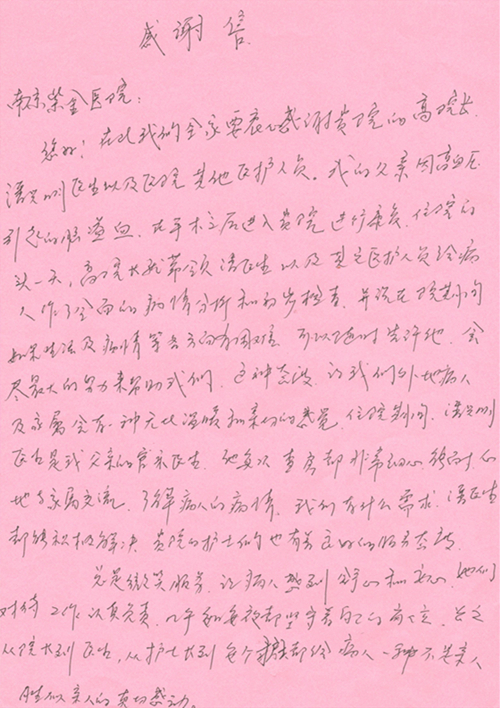 感谢信
南京紫金医院：
您好！在此我们全家要衷心感谢贵院的高院长
医生以及医院其他医护人员。我的父亲因高血压
引起的脑溢血，在手术之后进入贵院进行康复，住院的
头一天，高院长就带领医生以及其它医护人员给病
人作了全面的病情分析和初步检查，并说在院期间
如果生活及病情等各方面有困难，可以随时告诉他，会
尽最大的努力来帮助我们，这种态度，让我们外地病人
及家属会有一种无比温暖和亲切的感觉，住院期间，
医生是我父亲的管床医生，她每次查房都非常细心能耐心的
地与家属交流，了解病人的病情，我们有什么需求，医生
都能积极解决，贵院的护士们也有着良好的服务态度，
总是微笑服务，让病人感到舒心和安心，她们
对待工作认真负责，几乎每夜都坚守着自己的岗位，总之
从院长到医生，从护士长到每个都给病人一种不是亲人
胜似亲人的真切感动。